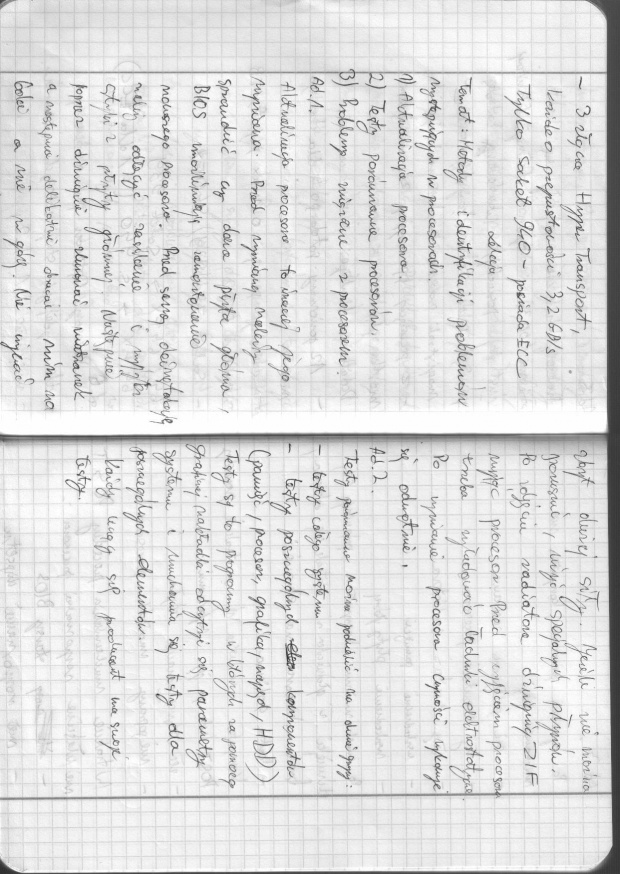 - 3 złącza Hyper Transport,
każde o przepustowości 3,2 GB/s
Tylko Socket 940 - posiada ECC
Lekcja
Temat: Metody identyfikacji problemów
występujących w procesorach
1) Aktualizacja procesora.
2) Testy porównawcze procesorów.
3) Problemy związane z procesorem.
Ad.1.
Aktualizacja procesora to inaczej jego
wymiana. Przed wymianą należy
sprawdzić czy dana płyta główna,
BIOS umożliwiają zamontowanie
nowego procesora. Przed samą
należy odłączyć zasilanie i
z płyty głównej. Następnie
poprzez zerwać
a następnie delikatnie obracać nim na
boki a nie w górę. Nie używać
zbyt dużej siły. Jeżeli nie można
poruszyć, użyć specjalnych płynów.
Po zdjęciu radiatora dźwignią ZIF
wyjąć procesor. Przed wyjęciem procesora
trzeba wyładować ładunki elektrostatyczne.
Po wymianie procesora czynność wykonuje
się odwrotnie.
Ad.2.
Testy porównawcze można podzielić na dwie grupy:
- testy całego systemu
- testy poszczególnych komponentów
(pamięć, procesor, grafika, napęd, HDD)
Testy są to programy w których za pomocą
graficznej nakładki odczytuje się parametry
systemu i uruchamia się testy dla
poszczególnych elementów.
Każdy producent ma swoje
testy.